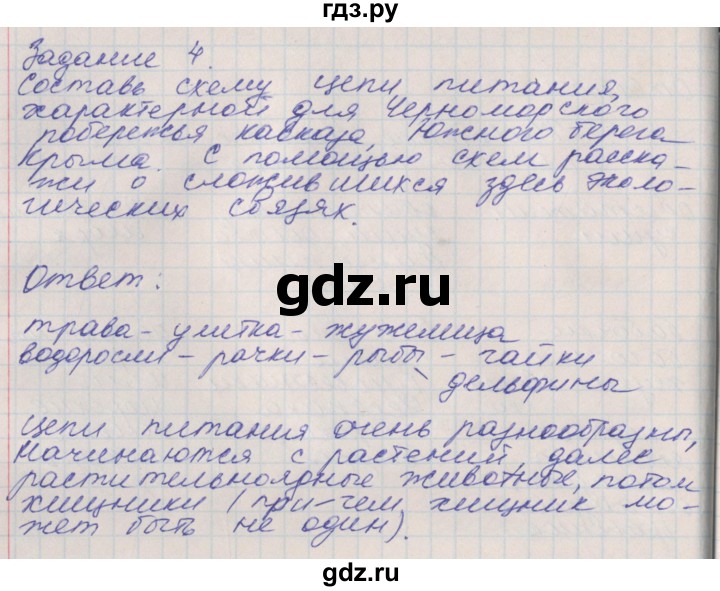 гдз.ру
Задание 4.
Составь схему цепи питания,
характерной для Черноморского
побережья кавказа, Южного берега
Крыма. С помощью схем расска-
жи о сложившихся здесь эколо-
гических связях.
Ответ:
gdz.ru
трава - улитка - жужелица
водоросли - рачки - рыбы - чайки
- дельфины
Цепи питания очень разнообразны,
Начинаются с растений далее
растительноядные животные, потом
хищники (при-чем хищник мо-
жет быть не один).
gdz.ru